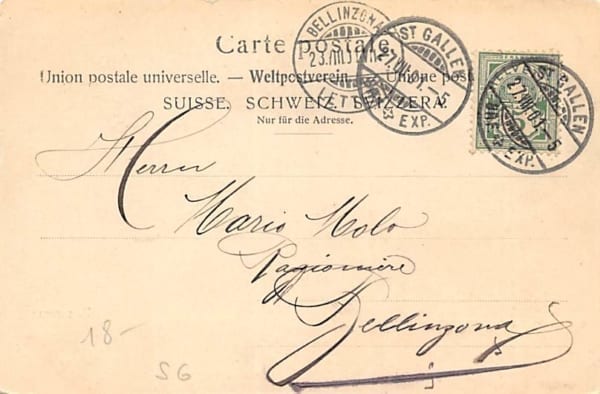 Carte postale.
Union postale universelle. — Weltpostverein — Unione post
SUISSE. SCHWEIZ. SVIZZERA.
Nur für die Adresse.
BELLINZONA
LETT
ST GALLEN
EXP.
ST GALLEN
EXP.
Herrn
Mario Molo
Ragioniere
Bellinzona
18-
SG